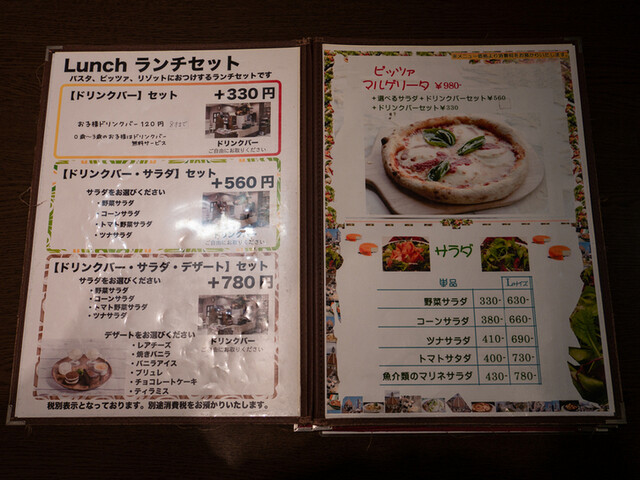 Lunch ランチセット
パスタ、ピッツァ、リゾットにおつけするランチセットです
【ドリンクバー】セット +330円
お子様ドリンクバー 120円
0歳〜3歳のお子様はドリンクバー
無料サービス
ドリンクバー
ご自由にお取りください
【ドリンクバー・サラダ】セット
+560円
サラダをお選びください
・野菜サラダ
・コーンサラダ
・トマト野菜サラダ
・ツナサラダ
ドリンクバー
ご自由にお取りください
【ドリンクバー・サラダ・デザート】セット
+780円
サラダをお選びください
・野菜サラダ
・コーンサラダ
・トマト野菜サラダ
・ツナサラダ
ドリンクバー
ご自由にお取りください
デザートをお選びください
・レアチーズ
・焼きバニラ
・バニラアイス
・ブリュレ
・チョコレートケーキ
・ティラミス
税別表示となっております。別途消費税をお預かりいたします。
ピッツァ
マルゲリータ ¥980-
+選べるサラダ+ドリンクバーセット¥560
+ドリンクバーセット¥330
サラダ
単品 Lサイズ
野菜サラダ 330- 630-
コーンサラダ 380- 660-
ツナサラダ 410- 690-
トマトサタダ 400- 730-
魚介類のマリネサラダ 430- 780-